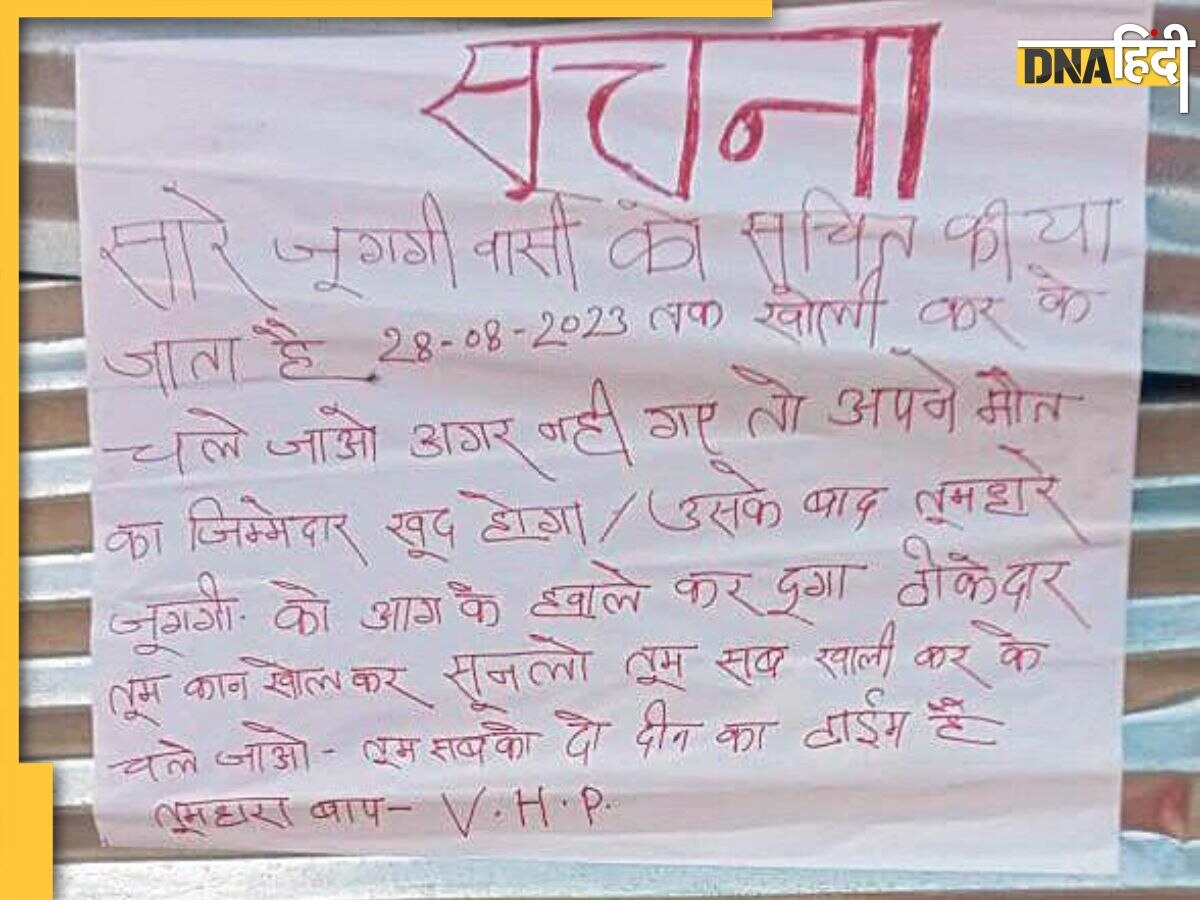 DNA हिंदी
सूचना
सारे जूगगी वासी को सुचित कीया
जाता है 28-08-2023 तक खोली कर के
चले जाओ अगर नही गए तो अपने मौत
का जिम्मेदार खूद होगा / उसके बाद तूमहारे
जूगगी. को आग के हवाले कर दुगा ठीकेदार
तूम कान खोल कर सूनलो तूम सब खाली कर के
चले जाओ - तूम सबको दो दीन का टाईम है
तूमहारा बाप - V.H.P.